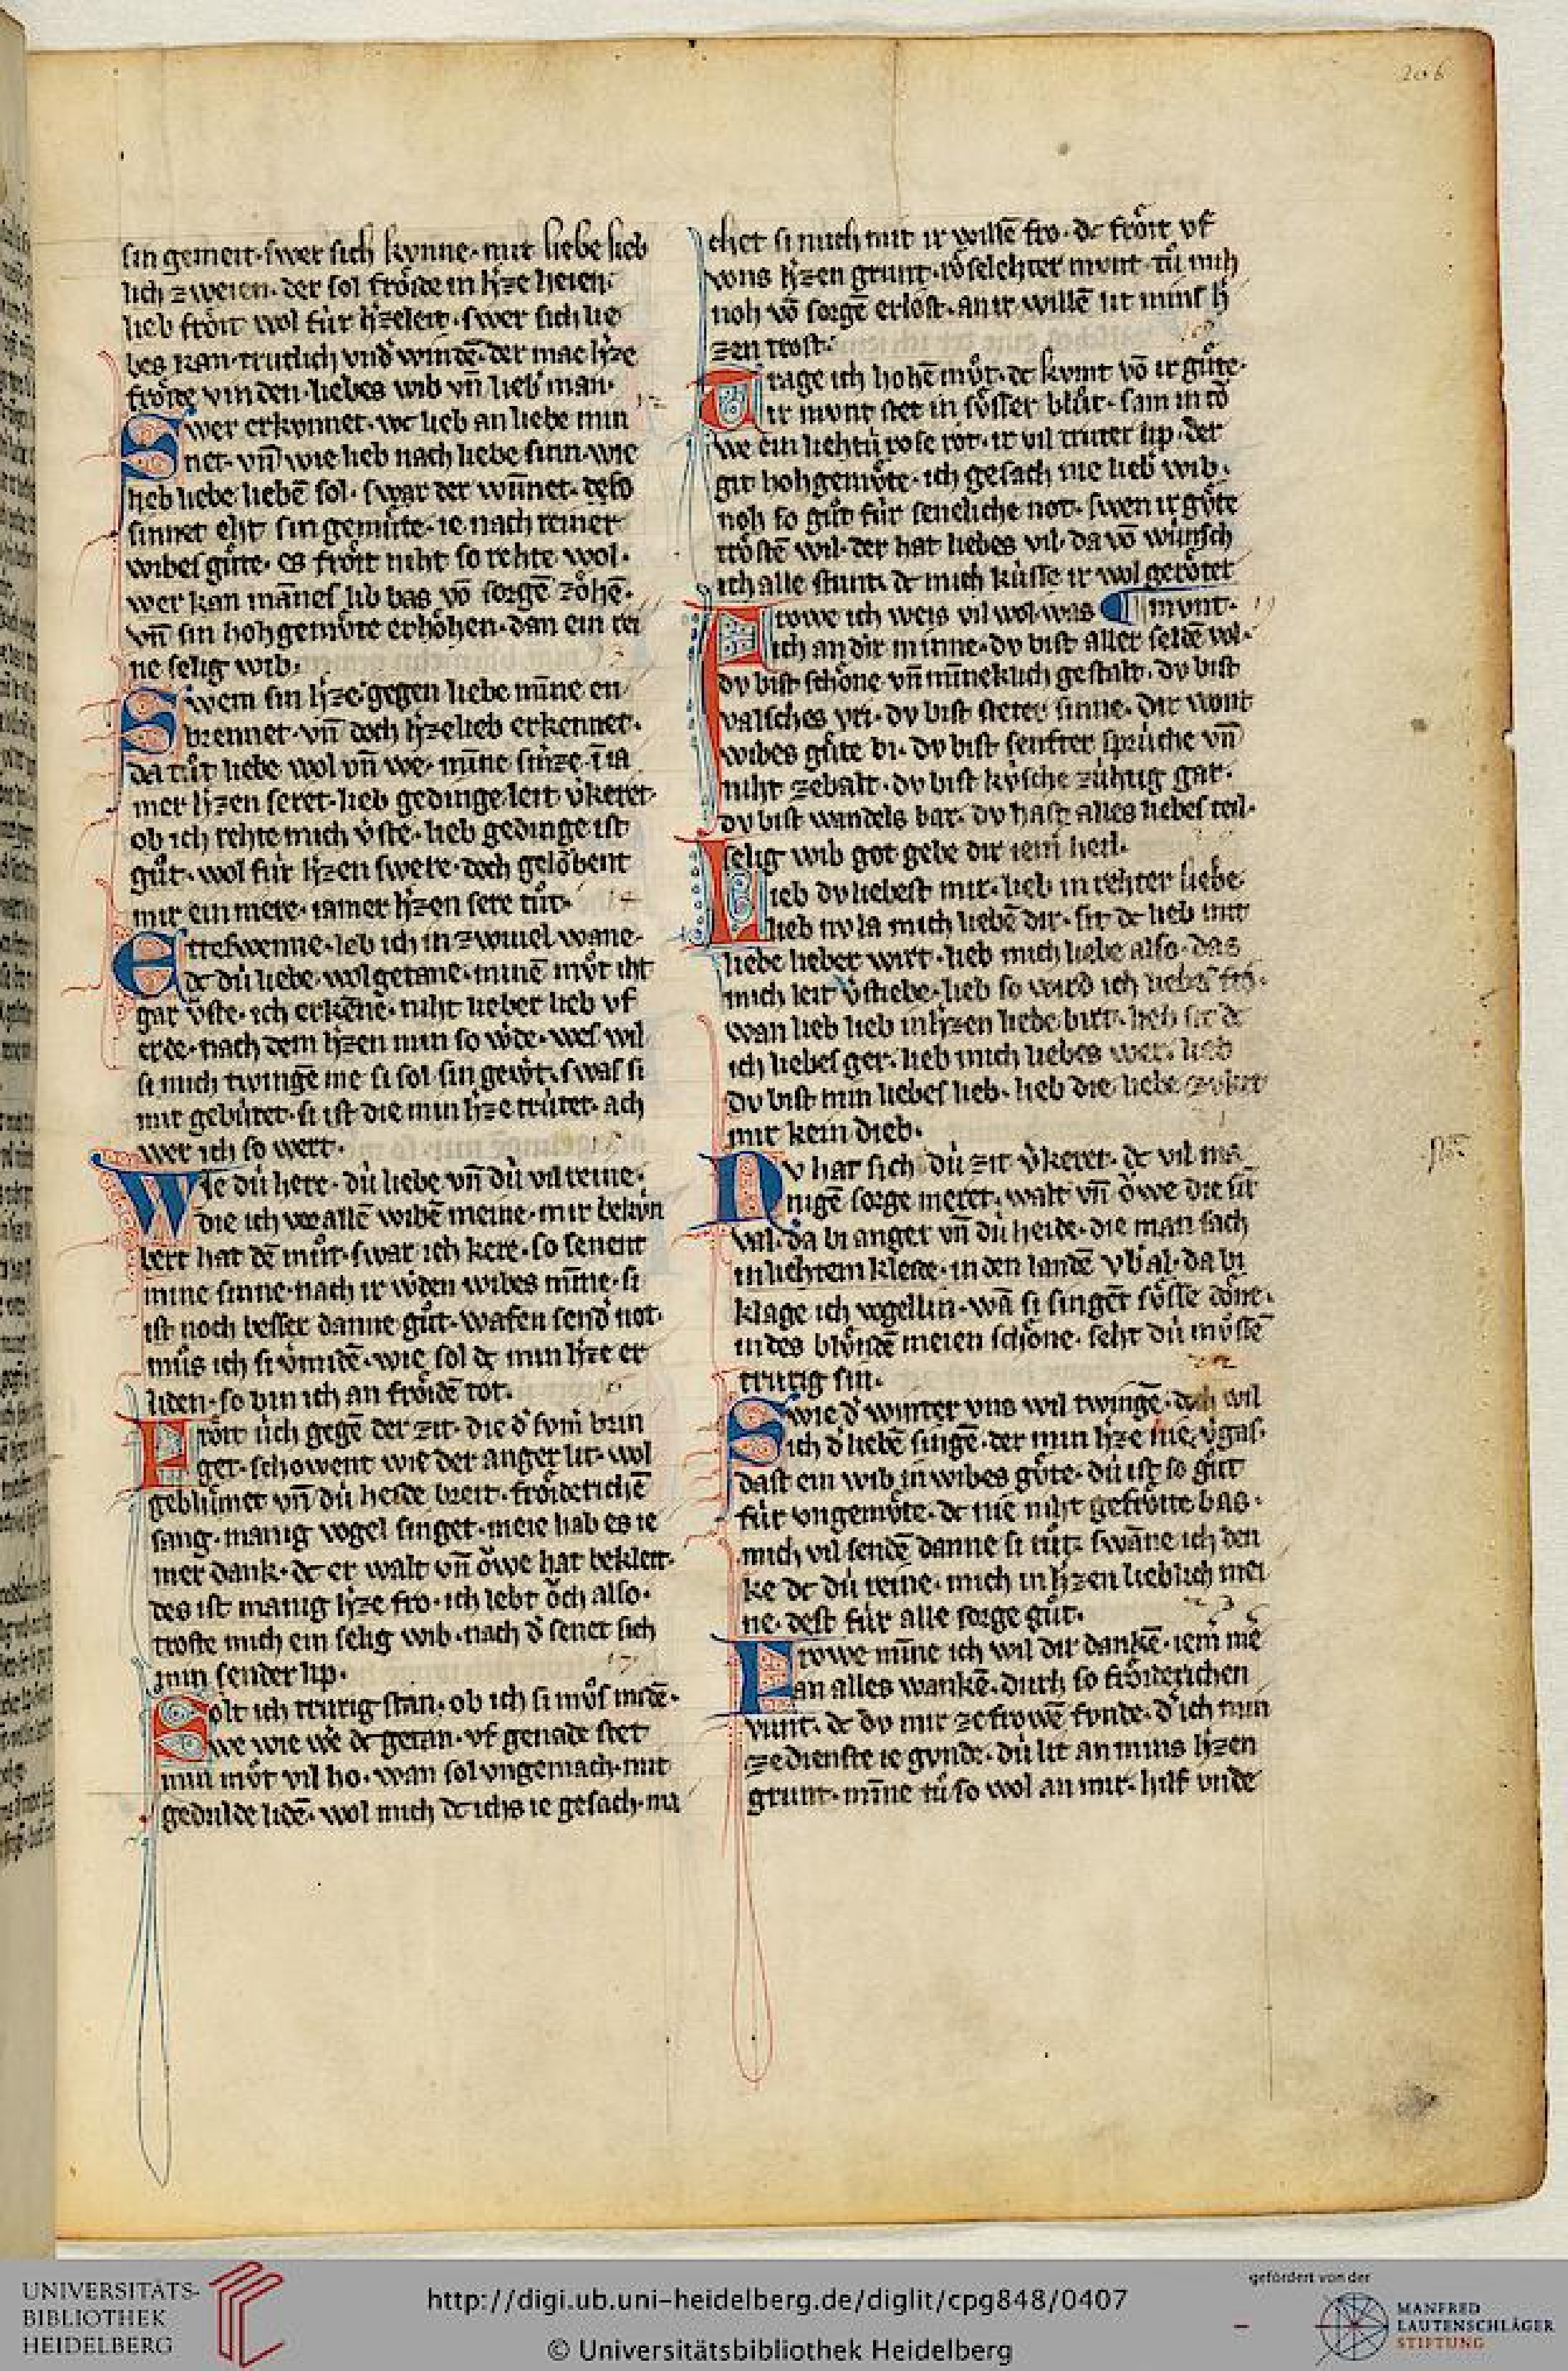 206
sin gemeit · swer sich kvnne · mit liebe lieb
lich zweien · der sol froͤide in h'ze heien ·
lieb froͤit wol fúr h'zeleit · swer sich lie
bes kan · trutlich vnd' windē · der mac h'ze
froͤide vinden · liebes wib vn̄ lieb' man ·
Swer erkvnnet · wc lieb an liebe min
net · vn̄ wie lieb nach liebe sinn · wie
lieb liebe liebē sol · swar der wn̄net · deso
sinnet eht sin gemuͤte · ie nach reiner
wibes guͤte · es froͤit niht so rehte wol ·
wer kan mānes lib bas vō sorgē zoͤhē ·
vn̄ sin hohgemuͤte erhoͤhen · dan ein rei
ne selig wib ·
Swem sin h'ze gegen liebe mīne en
brennet · vn̄ doch h'zelieb erkennet ·
da tuͦt liebe wol vn̄ we · mīne sin h'ze ī ia
mer h'zen seret · lieb gedinge leit v'keret ·
ob ich rehte mich v'ste · lieb gedinge ist
guͦt · wol fúr h'zen swere · doch geloͤbent
mir ein mere · iamer h'zen sere tuͦt · 14
Etteswenne · leb ich in zwiuel wane ·
dc dú liebe · wol getane · minē muͦt iht
gar v'ste · ich erkēne · niht lieber lieb vf
erde · nach dem h'zen min so w'de · wes wil
si mich twingē me · si sol sin gew't · swas si
mir gebútet · si ist die min h'ze trútet · ach
wer ich so wert ·
Wie dú here · dú liebe vn̄ dú vil reine ·
die ich vor allē wibē meine · mir bekún
bert hat dē muͦt · swar ich kere · so senent
mine sinne · nach ir w'den wibes mīne · si
ist noch besser danne guͦt · wafen send' not ·
muͦs ich si v'midē · wie sol dc min h'ze er
liden · so bin ich an froͤidē tot ·
Froͤit úch gegē der zit · die d' svm' brin
get · schowent wie der anger lit · wol
gebluͤmet vn̄ dú heide breit · froͤiderichē
sang · manig vogel singet · meie hab es ie
mer dank · dc er walt vn̄ oͮwe hat bekleit ·
des ist manig h'ze fro · ich lebt oͮch also ·
troste mich ein selig wib · nach d' senet sich
min sender lip · 17
Solt ich trurig stan · ob ich si muͦs midē ·
we wie we dc getan · vf genade stet
min muͦt vil ho · wan sol vngemach · mit
gedulde lidē · wol mich dc ichs ie gesach · ma
chet si mich mit ir willē fro · dc froͤit vf
vons h'zen grunt · roͤselehter mvnt · tuͦ mih
noh vō sorgē erlost · an ir willē lit mins h'
zen trost ·
Trage ich hohē muͦt · dc kvmt vō ir guͤte ·
ir mvnt stet in suͤsser bluͤt · sam in to
we ein liehtú rose rot · ir vil truter lip · der
git hohgemuͤte · ich gesach nie lieb' wib ·
noh so guͦt fúr seneliche not · swen ir guͤte
troͤstē wil · der hat liebes vil · da vō wúnsch
ich alle stunt · dc mich kússe ir wol geroͤtet
Frowe ich weis vil wol was ¶ mvnt ·
ich an dir minne · dv bist aller seldē vol ·
dv bist schoͤne vn̄ mīneklich gestalt · dv bist
valsches vri · dv bist steter sinne · dir wont
wibes guͤte bi · dv bist senfter sprúche vn̄
niht zebalt · dv bist kúsche zúhtig gar ·
dv bist wandels bar · dv hast alles liebes teil ·
selig wib got gebe dir iem' heil ·
Lieb dv liebest mir · lieb in rehter liebe
lieb nv la mich liebē dir · sit dc lieb mit
liebe lieber wirt · lieb mich liebe also · das
mich leit v'stiebe · lieb so wird ich liebes fro ·
wan lieb lieb in h'zen liebe birt · lieb sit dc
ich liebes ger · lieb mich liebes wer · lieb
dv bist min liebes lieb · lieb die liebe zvket
mir kein dieb ·
Nv hat sich dú zit v'keret · dc vil ma
nigē sorge meret · walt vn̄ oͮwe die sit
val · da bi anger vn̄ dú heide · die man sach
in liehtem kleide · in den landē v̓bal · da bi
klage ich vogellin · wā si singēt suͤsse doͤne ·
in des bluͤndē meien schoͤne · seht dú muͤssē
trurig sin ·
Swie d' winter vns wil twingē · doh wil
ich d' liebē singē · der min h'ze nie v'gas ·
dast ein wib in wibes guͤte · dú ist so guͦt
fúr vngemuͤte · dc nie niht gefroͤite bas ·
mich vil sendē danne si tuͦt · swāne ich den
ke dc dú reine · mich in h'zen lieblich mei
ne · dest fúr alle sorge guͦt ·
Frowe mīne ich wil dir dankē · iem' mē
an alles wankē · durh so froͤiderichen
vunt · dc dv mir ze frowē fvnde · d' ich min
ze dienste ie gvnde · dú lit an mins h'zen
grunt · mīne tuͦ so wol an mir · hilf vnde
UNIVERSITÄTS-
BIBLIOTHEK
HEIDELBERG
http://digi.ub.uni-heidelberg.de/diglit/cpg848/0407
© Universitätsbibliothek Heidelberg
gefördert von der
MANFRED
LAUTENSCHLÄGER
STIFTUNG